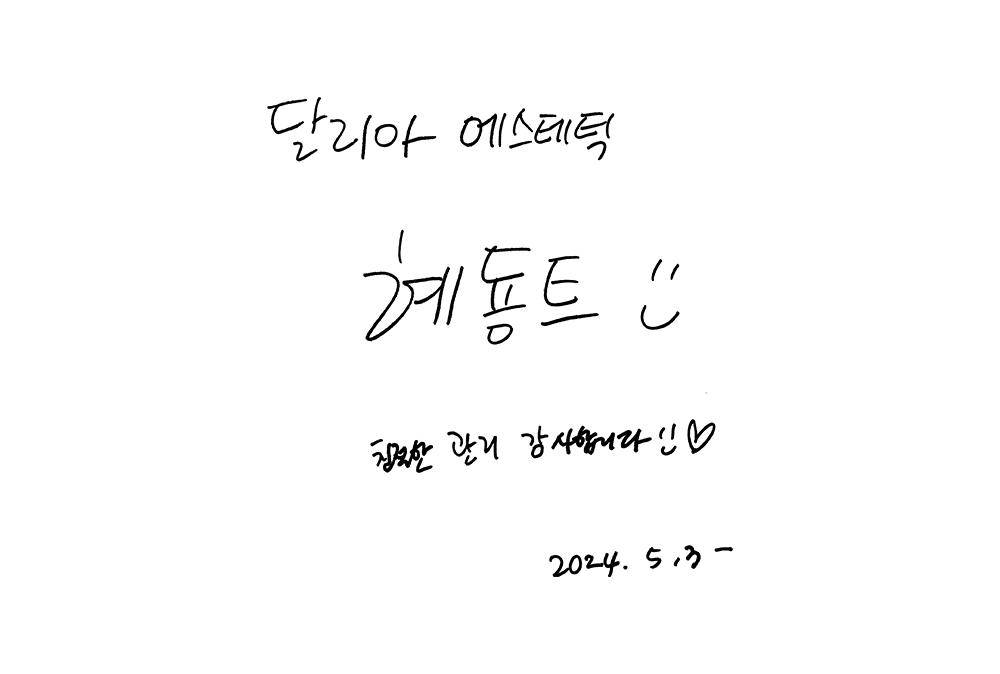 달리아 에스테틱
혜통트 :)
꼼꼼한 관리 감사합니다 :) ♡
2024. 5. 3 -